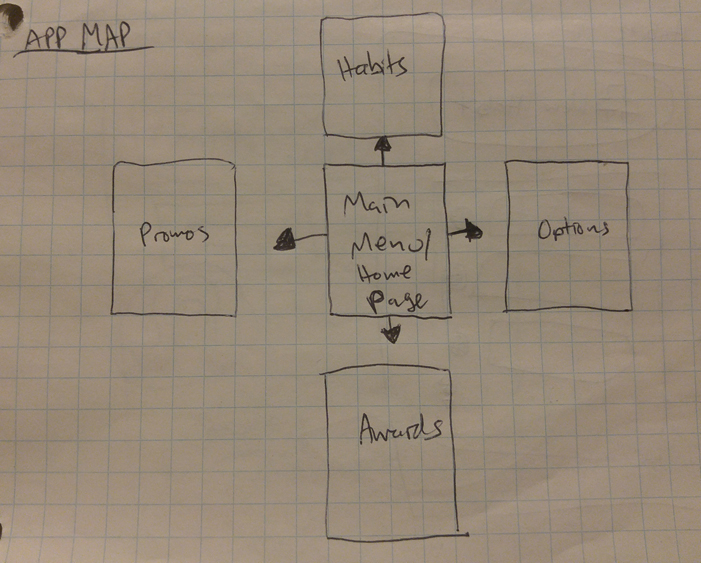 APP MAP
Habits
Promos
Main
Menu/
Home
Page
Options
Awards